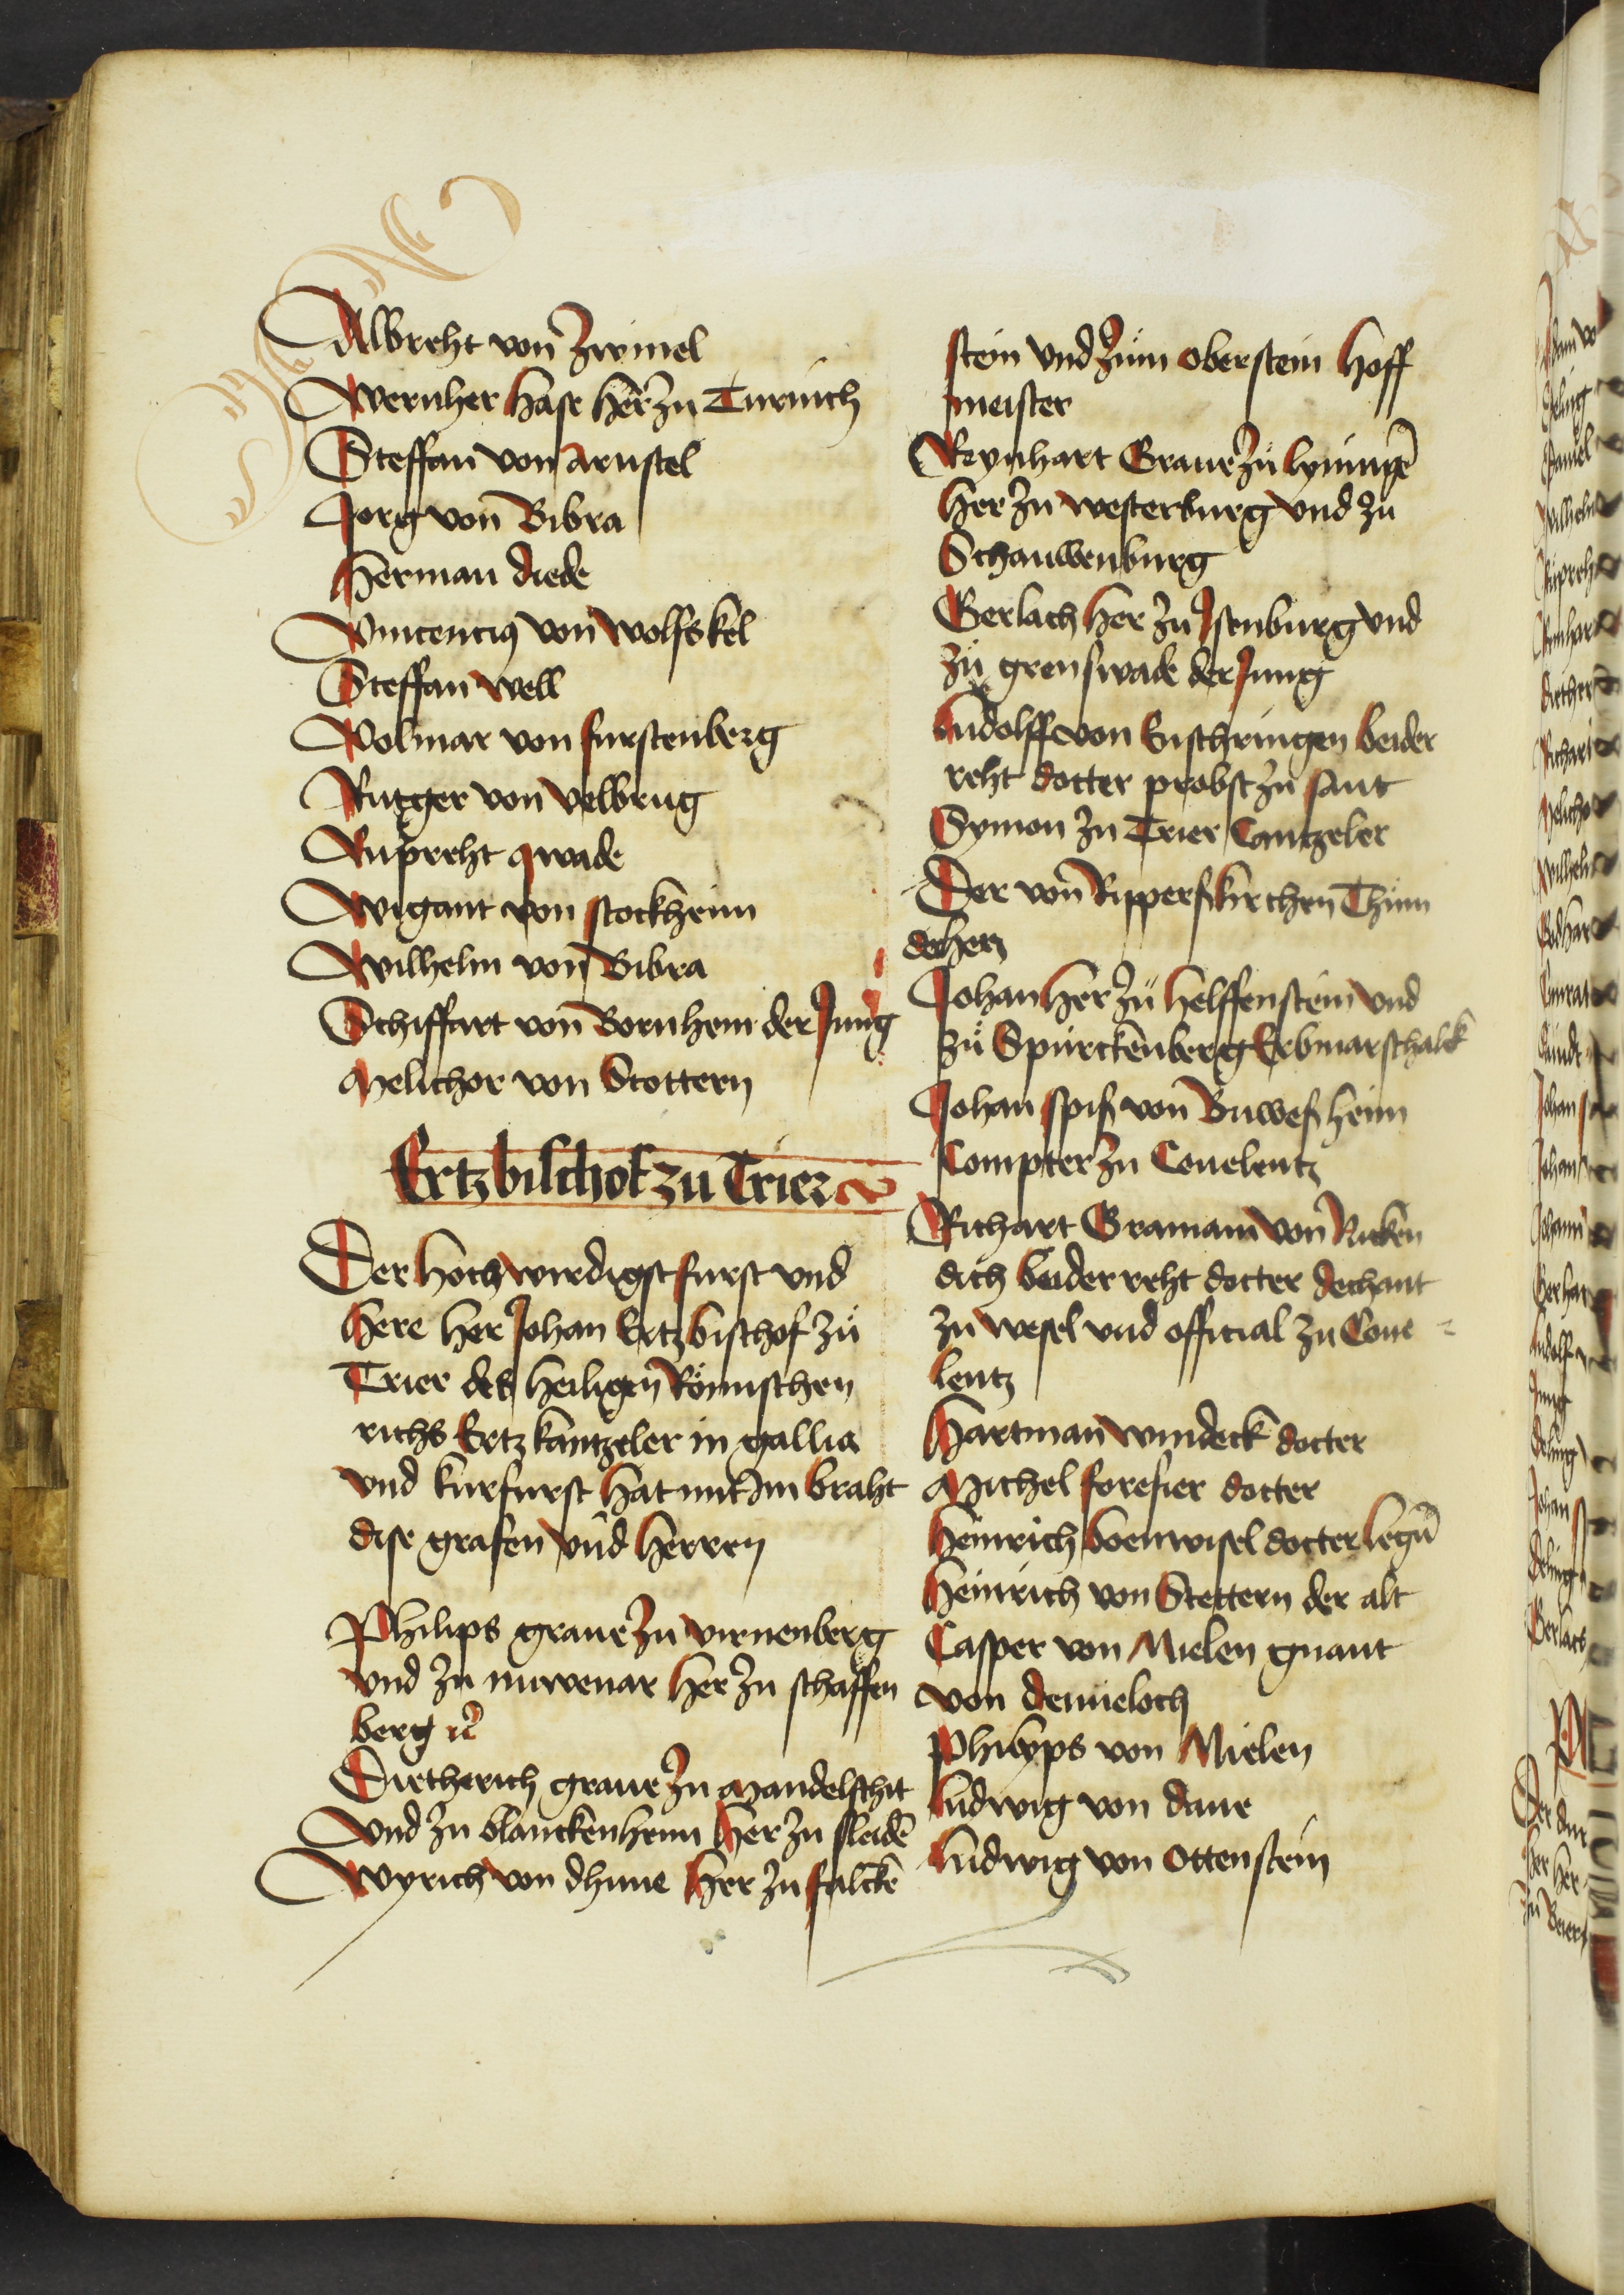 Albreht von Zwinel
Wernher hase her zu Turnich
Steffan von Arnstel
Jorg von Bibra
Herman diede
Vincencius von wolfskel
Steffan well
Volmar von furstenberg
Rutger von velbrug
Rupreht qwade
Wigant von stockheim
Wilhelm von Bibra
Schiffart von Bornhem der Jung
Melichor von Stottern
Ertzbischof zu Trier
Der hochwirdigst furst und
here her Johan Ertzbischof zu
Trier des heiligen Römischen
richs Ertzkantzeler in gallia
und kurfurst hat mit Im braht
dise grafen und herren
Philips graue zu virnenberg
und zu nuwenar her zu schaffen
berg ꝛc
Dietherich graue zu Mandelschit
und zu blanckenheim her zu sleidē
Wyrich von dhune her zu falckē
stein und zum oberstein hoff
meister
Reynhart Graue zu lyningē
her zu westerburg und zu
Schauwenburg
Gerlach her zu Jsenburg und
zu grenswade der Jung
Ludolff von Enschringen beider
reht docter probst zu sant
Symon zu Trier Cantzeler
Der von Ripperskirchen Thum
decher
Johan her zu helffenstein und
zu Spurckenberg Erbmarschalk
Johan spis von Buwesheim
Compter zu Couelentz
Richart Gramann von Nicken
dich beider reht docter dechant
zu wesel und official zu Coue
lentz
Hartman windeck docter
Michel foresier docter
Heinrich boenwisel docter legū
Heinrich von Stettern der alt
Casper von Mielen gnant
von demeloch
Philyps von Mielen
Ludwig von dane
Ludwig von Ottenstein